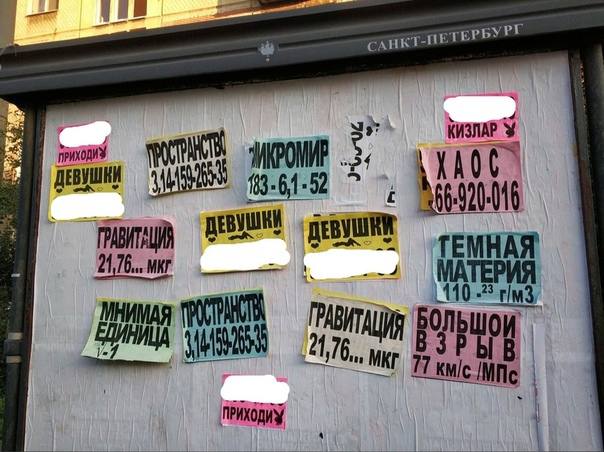 САНКТ-ПЕТЕРБУРГ
ПРИХОДИ
ДЕВУШКИ
ПРОСТРАНСТВО
3,14-159-265-35
МИКРОМИР
183-6,1-52
КИЗЛАР
ХАОС
66-920-016
ГРАВИТАЦИЯ
21,76... МКГ
ДЕВУШКИ
ДЕВУШКИ
ТЕМНАЯ
МАТЕРИЯ
110 -23 г/м3
МНИМАЯ
ЕДИНИЦА
√-1
ПРОСТРАНСТВО
3,14-159-265-35
ГРАВИТАЦИЯ
21,76... МКГ
БОЛЬШОЙ
ВЗРЫВ
77 км/с /МПс
ПРИХОДИ